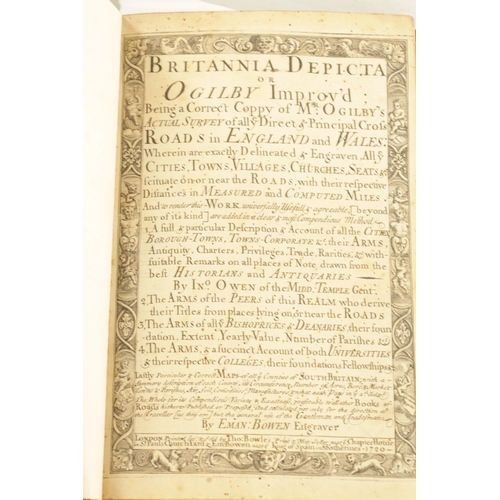 BRITANNIA DEPICTA
OR
OGILBY Improv'd
Being a Correct Coppy of Mr. OGILBY's
ACTUAL SURVEY of all ye Direct & Principal Cross
ROADS in ENGLAND and WALES:
Wherein are exactly Delineated & Engraven, All ye
CITIES, TOWNS, VILLAGES, CHURCHES, SEATS &c
scituate on or near the ROADS, with their respective
Distances in MEASURED and COMPUTED MILES
And to render this WORK universally Usefull & agreeable, [beyond
any of its kind] are added in a clear & most Compendious Method
1. A full & particular Description & Account of all the CITIES,
BOROUGH-TOWNS, TOWNS-CORPORATE &c. their ARMS,
Antiquity, Charters, Privileges, Trade, Rarities, &c. with
suitable Remarks on all places of Note drawn from the
best HISTORIANS and ANTIQUARIES
By Ino. OWEN of the MIDD: TEMPLE Gent.
2. The ARMS of the PEERS of this REALM who derive
their Titles from places lying on or near the ROADS
3. The ARMS of all ye BISHOPRICKS & DEANARIES, their foun
-dation, Extent, Yearly Value, Number of Parishes &c
4. The ARMS, & a succinct Account of both UNIVERSITIES
& their respective COLLEGES, their foundations, Fellowships &c
Lastly Particular & Correct MAPS of all ye Counties of SOUTH BRITAIN; with a
Summary description of each County, its Circumference, Number of
The Whole for its Compendious Variety & Exactness, preferable to all other Books of
Roads hitherto Published or Proposed; And calculated not only for the direction of
the Traveller but the general use of the Gentleman and Tradesman
By EMAN: BOWEN Engraver
LONDON Printed for & Sold by Tho. Bowles Print & Map Seller next ye Chapter House
in St. Pauls Church yard & Em. Bowen near ye King of Spain in St. Katherines 1720